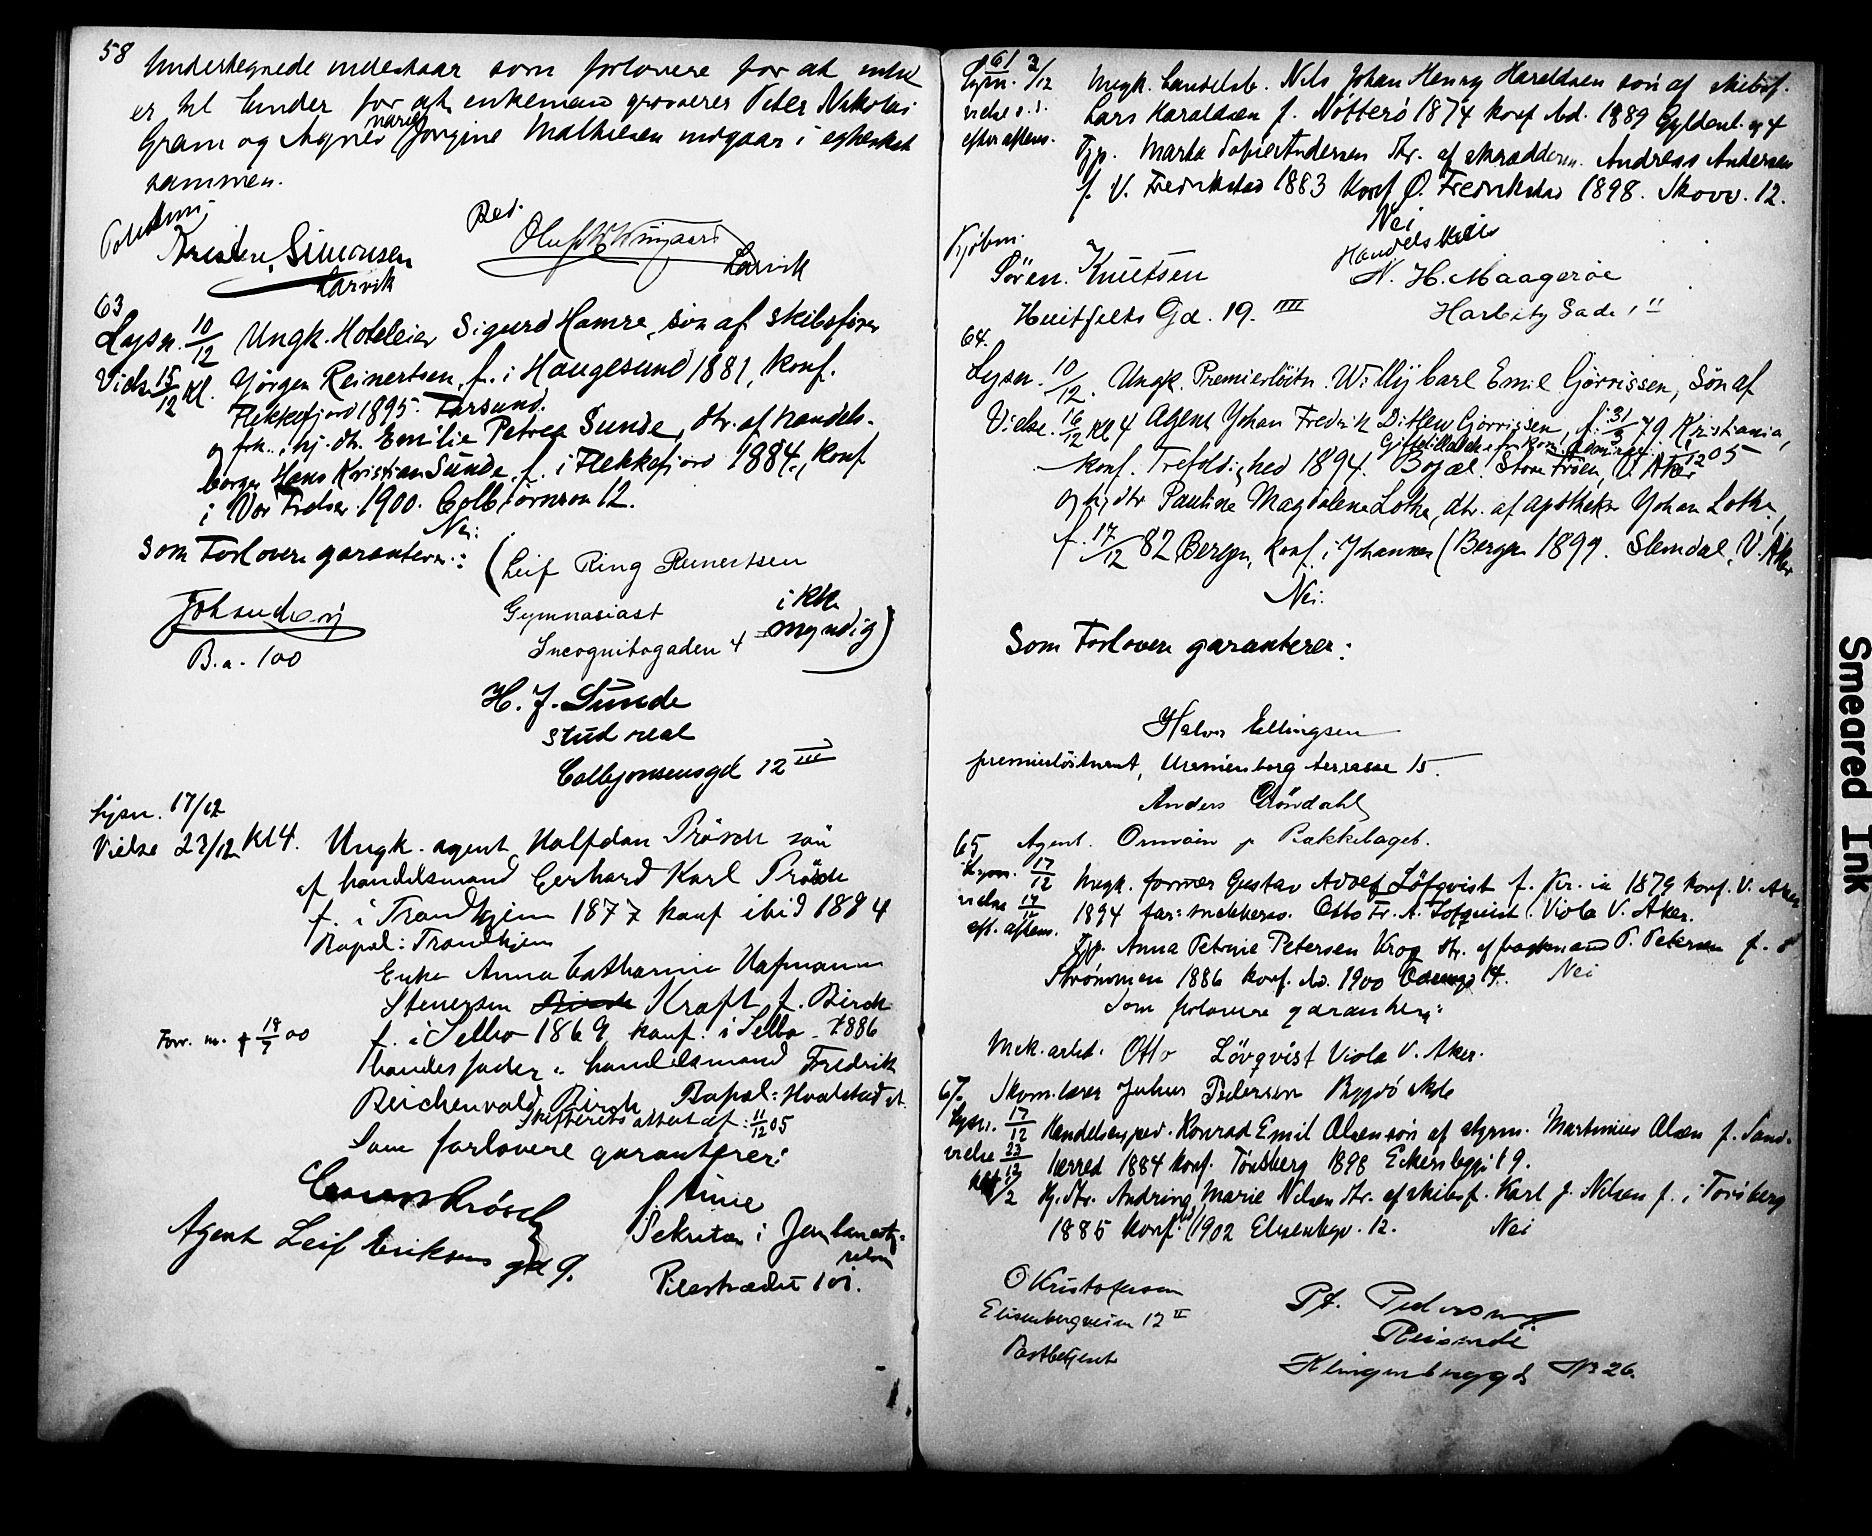 58
Undertegnede indestaar som forlovere for at intet
er til hinder for at enkemand Peter Nikolai
Gram og Agnes Marie Jørgine Mathiesen indgaar i egteskab
sammen.
Kristen Simonsen
Larvik
Larvik
63
Lysn. 10/12 Ungk. Hoteleier Sigurd Hamre, søn af skibsfører
Vielse 15/12 Kl. Jørgen Reinertsen, f. i Haugesund 1881, konf.
Flekkefjord 1895. Farsund.
og frk., hj. dtr. Emilie Petrea Sunde, dtr. af handels-
borger Hans Kristian Sunde, f. i Flekkefjord 1884, konf
i Vor Frelser 1900. Colbjørnsen 12.
Nei.
Som Forlovere garanterer:
(Leif Ring Reinertsen
Gymnasiast
Incognitogaden 4
ikke
myndig)
B.a. 100
H. J. Sunde
stud real
Colbjørnsensgd 12 III
Lysn. 17/12
Vielse 23/12 Kl 4. Ungk. agent Halfdan Prösch søn
af handelsmand Gerhard Karl Prösch
f. i Trondhjem 1877 konf ibid 1894
Bopæl: Trondhjem
Enke Anna Catharina Hofmann
Stenersen Kraft f. Birch
f. i Selbo 1869 konf. i Selbo 1886
Forr. m. † 18/7 00
hendes fader: handelsmand Fredrik
Reichenvald Birch Bopæl: Hvalstad st.
Skifterets attest af: 11/12 05
Som forlovere garanterer:
Prösch
Agent Leif Eriksens gd 9.
Sekretær i Jernbanesty-
relsen
Pilestrædet 101.
61
Lysn. 3/12 Ungk. handelsb. Nils Johan Henry Haraldsen søn af skibsf.
vielse
efter aftens.
Lars Haraldsen f. Nøtterö 1874 konf ibd. 1889 Gyldenl. g 4
Pgp. Marta Sofie Andersen dtr. af skrædderm. Andreas Andersen
f. V. Fredrikstad 1883 Konf Ø. Fredrikstad 1898. Skovv. 12.
Nei
Kjøbm.
Søren Knutsen
Huitfelts Gd. 19. IIII
N. H. Maagerøe
Harbitz Gade 1 II
64.
Lysn. 10/12. Ungk. Premierløitn. Willy Carl Emil Gjørrissen, Søn af
Vielse. 16/12 Kl 4 Agent Johan Fredrik Ditlew Gjørrissen, f. 31/3 79 Kristiania,
konf. Trefoldighed 1894. Bopæl. Store Frøen, V. Aker
og hj. dtr Pauline Magdalene Lothe, dtr. af apotheker Johan Lothe,
f. 17/12 82 Bergen, konf. i Johannes (Bergen 1899. Slemdal, V. Aker
Nei.
Som Forlovere garanterer:
Halvor Ellingsen
premierløitnant, Uranienborg terrasse 15.
Anders Gröndahl
Agent. Ormöen pr Bækkelaget.
65
Lysn. 17/12 Ungk. former Gustav Adolf Löfqvist f. Kr.ia 1879 konf. V. Aker
vielse
eft. aftens.
1894 far: snekkersv. Otto Fr. A. Löfqvist. Viola V. Aker.
Pgp. Anna Petrine Petersen Krog dtr. af P. Petersen f. i
Strømmen 1886 konf. ibd. 1900
Nei
Som forlovere garanterer:
Mek. arbd. Otto Lövqvist Viola V. Aker.
Skom. lærer Julius Pedersen Bygdö skole
67.
Lysn. 17/12 Handelsexped. Konrad Emil Olsen søn af styrm. Martinius Olsen f. Sand-
vielse 23/12 herred 1884 konf. Tönsberg 1898 Eckersbggt 19.
Hj. dtr. Andrine Marie Nilsen dtr. af skibsf. Karl J. Nilsen f. i Tønsberg
1885 konf ibd 1902 Elisenbgv. 12.
Nei
O Kristofersen
Elisenbergveien 12 II
Postbetjent
Pt. Pedersen
Reisende
Klingenberggd No 26.
Smeared Ink